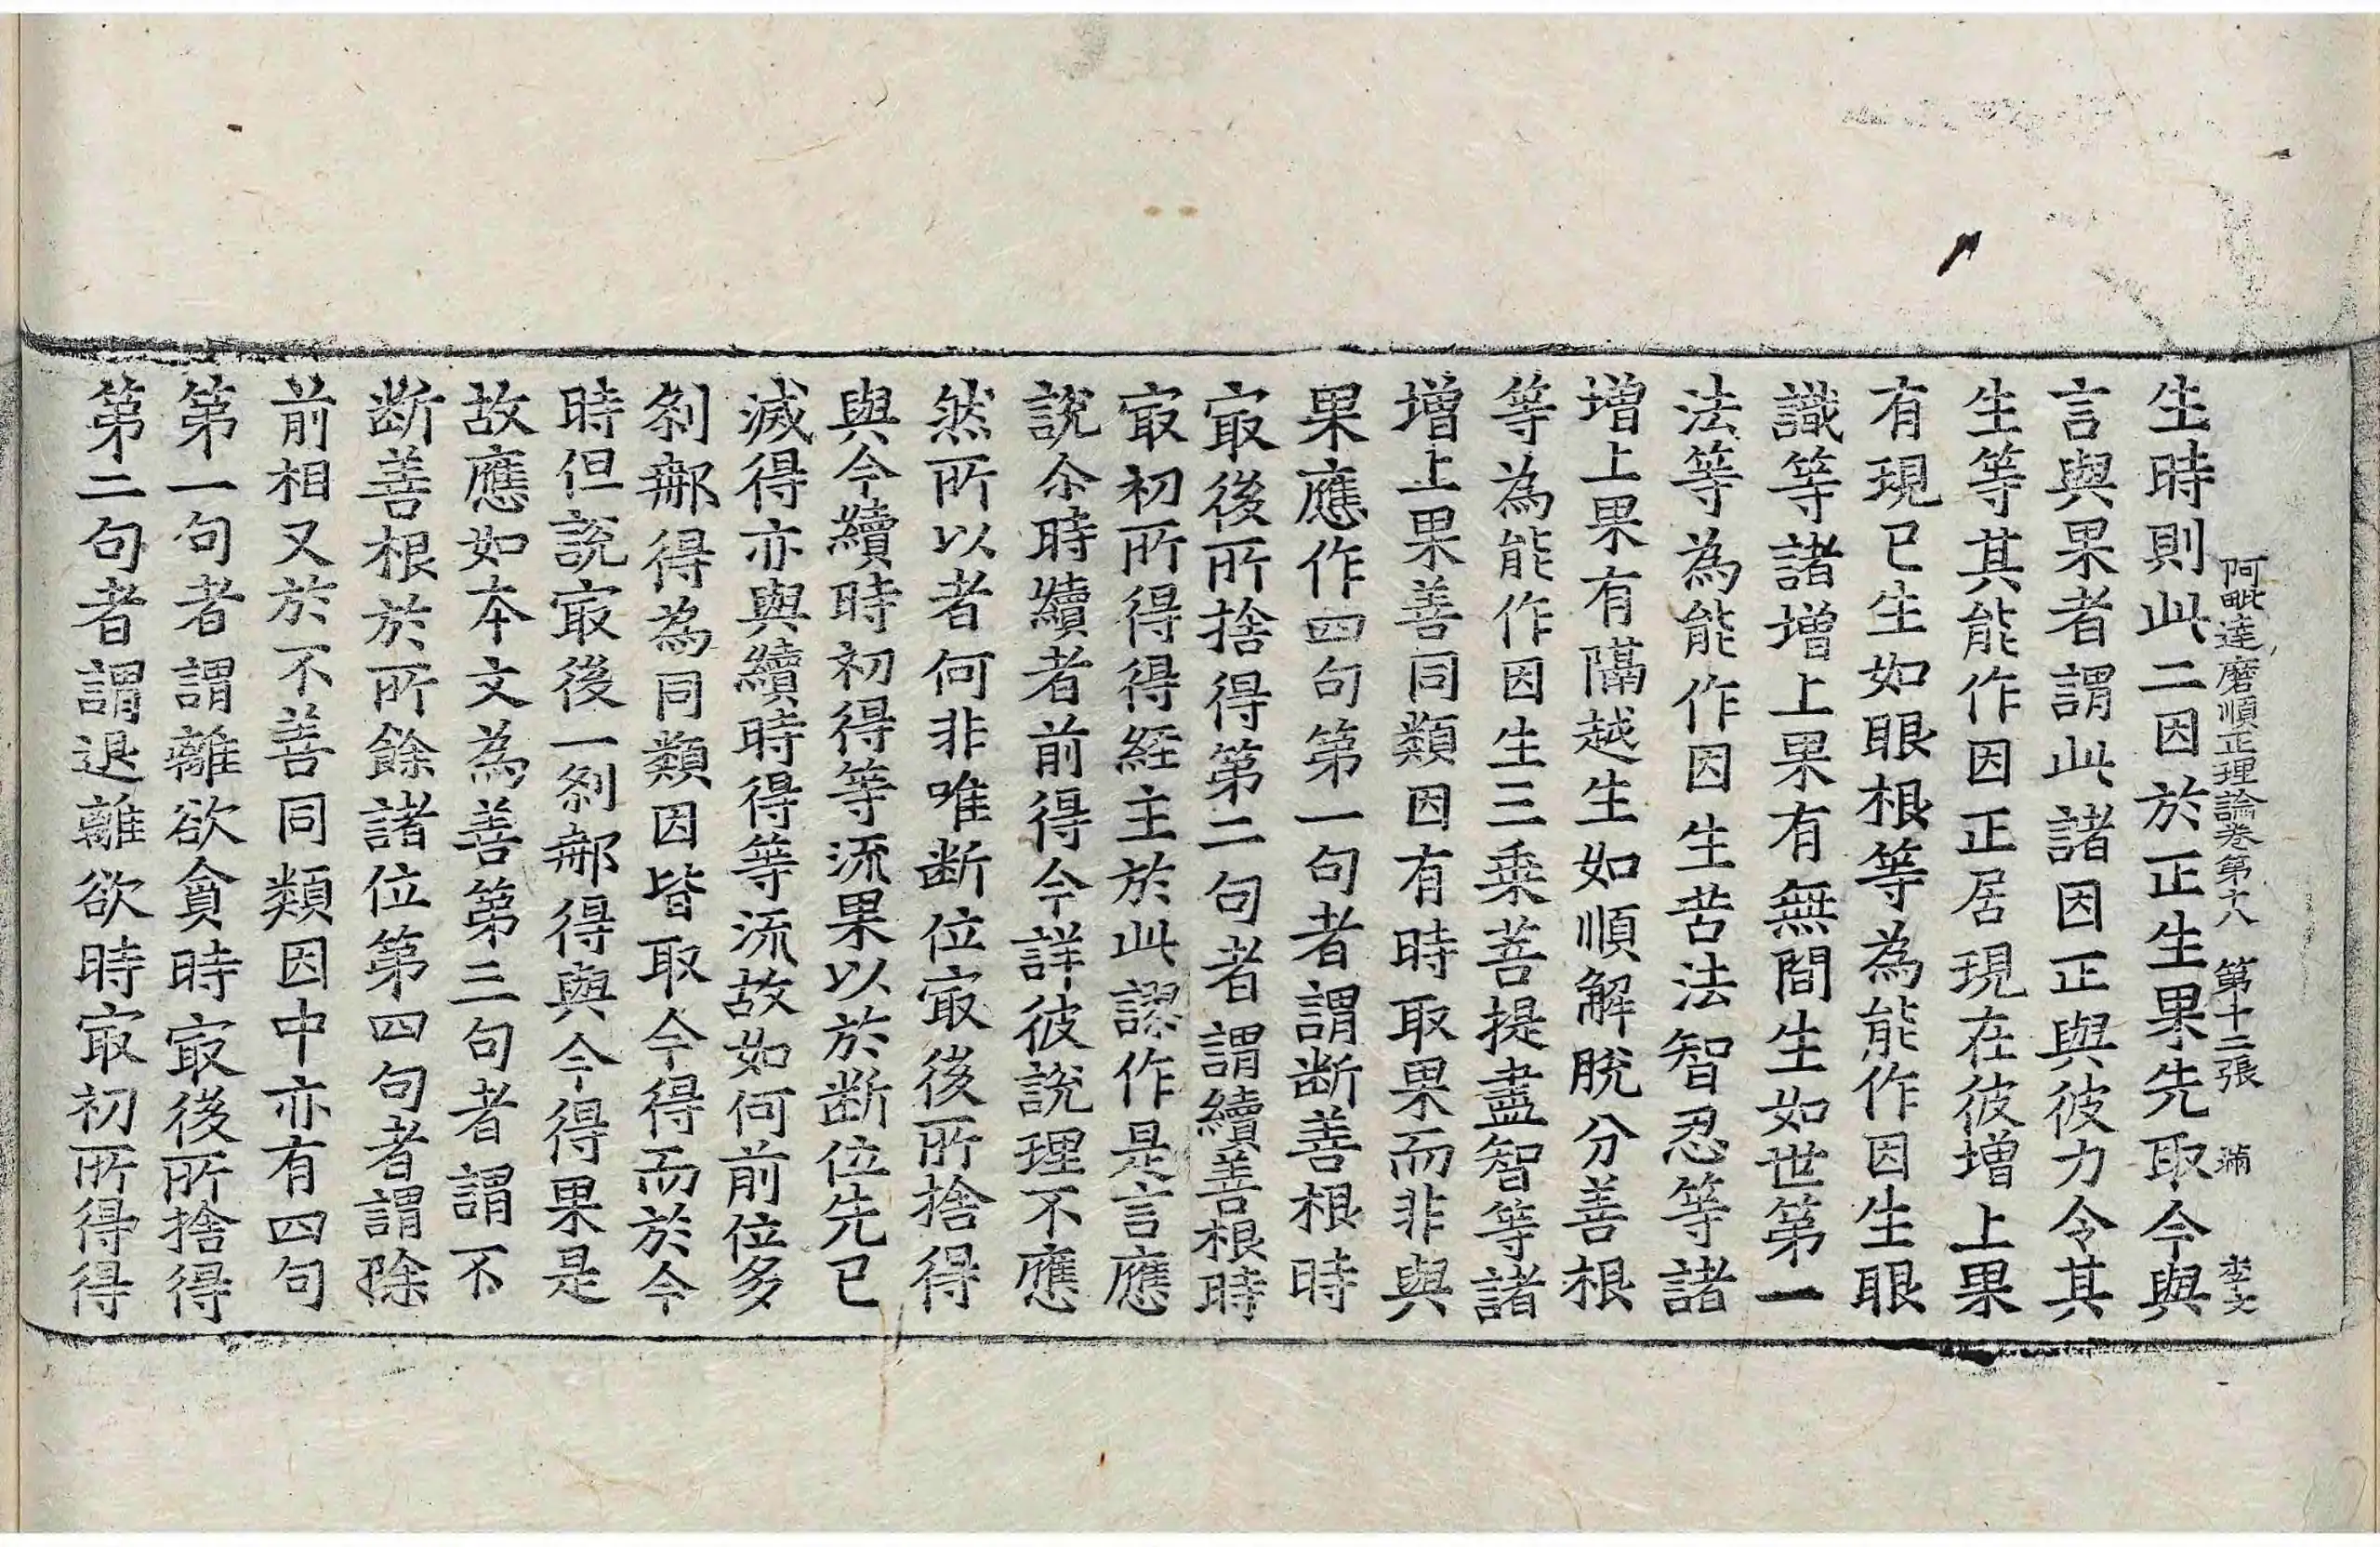 阿毗達磨順正理論卷第十八 第十二張 滿 李文
生時則此二因於正生果先取今與
言與果者謂此諸因正與彼力令其
生等其能作因正居現在彼增上果
有現已生如眼根等為能作因生眼
識等諸增上果有無間生如世第一
法等為能作因生苦法智忍等諸
增上果有隔越生如順解脫分善根
等為能作因生三乘菩提盡智等諸
增上果善同類因有時取果而非與
果應作四句第一句者謂断善根時
㝡後所捨得第二句者謂續善根時
㝡初所得得経主於此謬作是言應
說尒時續者前得今詳彼說理不應
然所以者何非唯断位㝡後所捨得
與今續時初得等流果以於断位先已
滅得亦與續時得等流故如何前位多
刹那得為同類因皆取今得而於今
時但說㝡後一刹那得與今得果是
故應如本文為善第三句者謂不
断善根於所餘諸位第四句者謂除
前相又於不善同類因中亦有四句
第一句者謂離欲貪時㝡後所捨得
第二句者謂退離欲時㝡初所得得